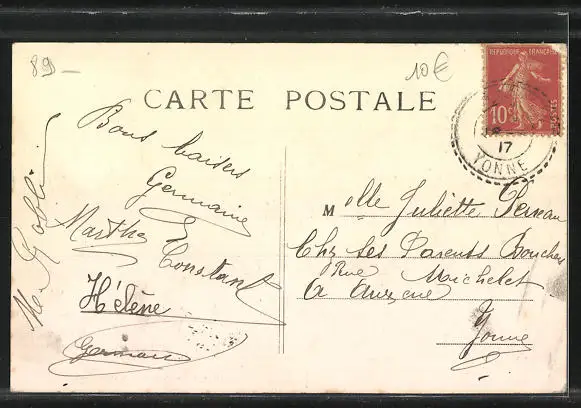 89 -
10€
CARTE POSTALE
REPUBLIQUE FRANÇAISE
10c
POSTES
17
YONNE
Bons baisers
Germaine
Marthe
Constant
Hélène
Germain
Melle Juliette Perreau
Chez Ses Parents Boucher
Rue Michelet
A Auxerre
Yonne